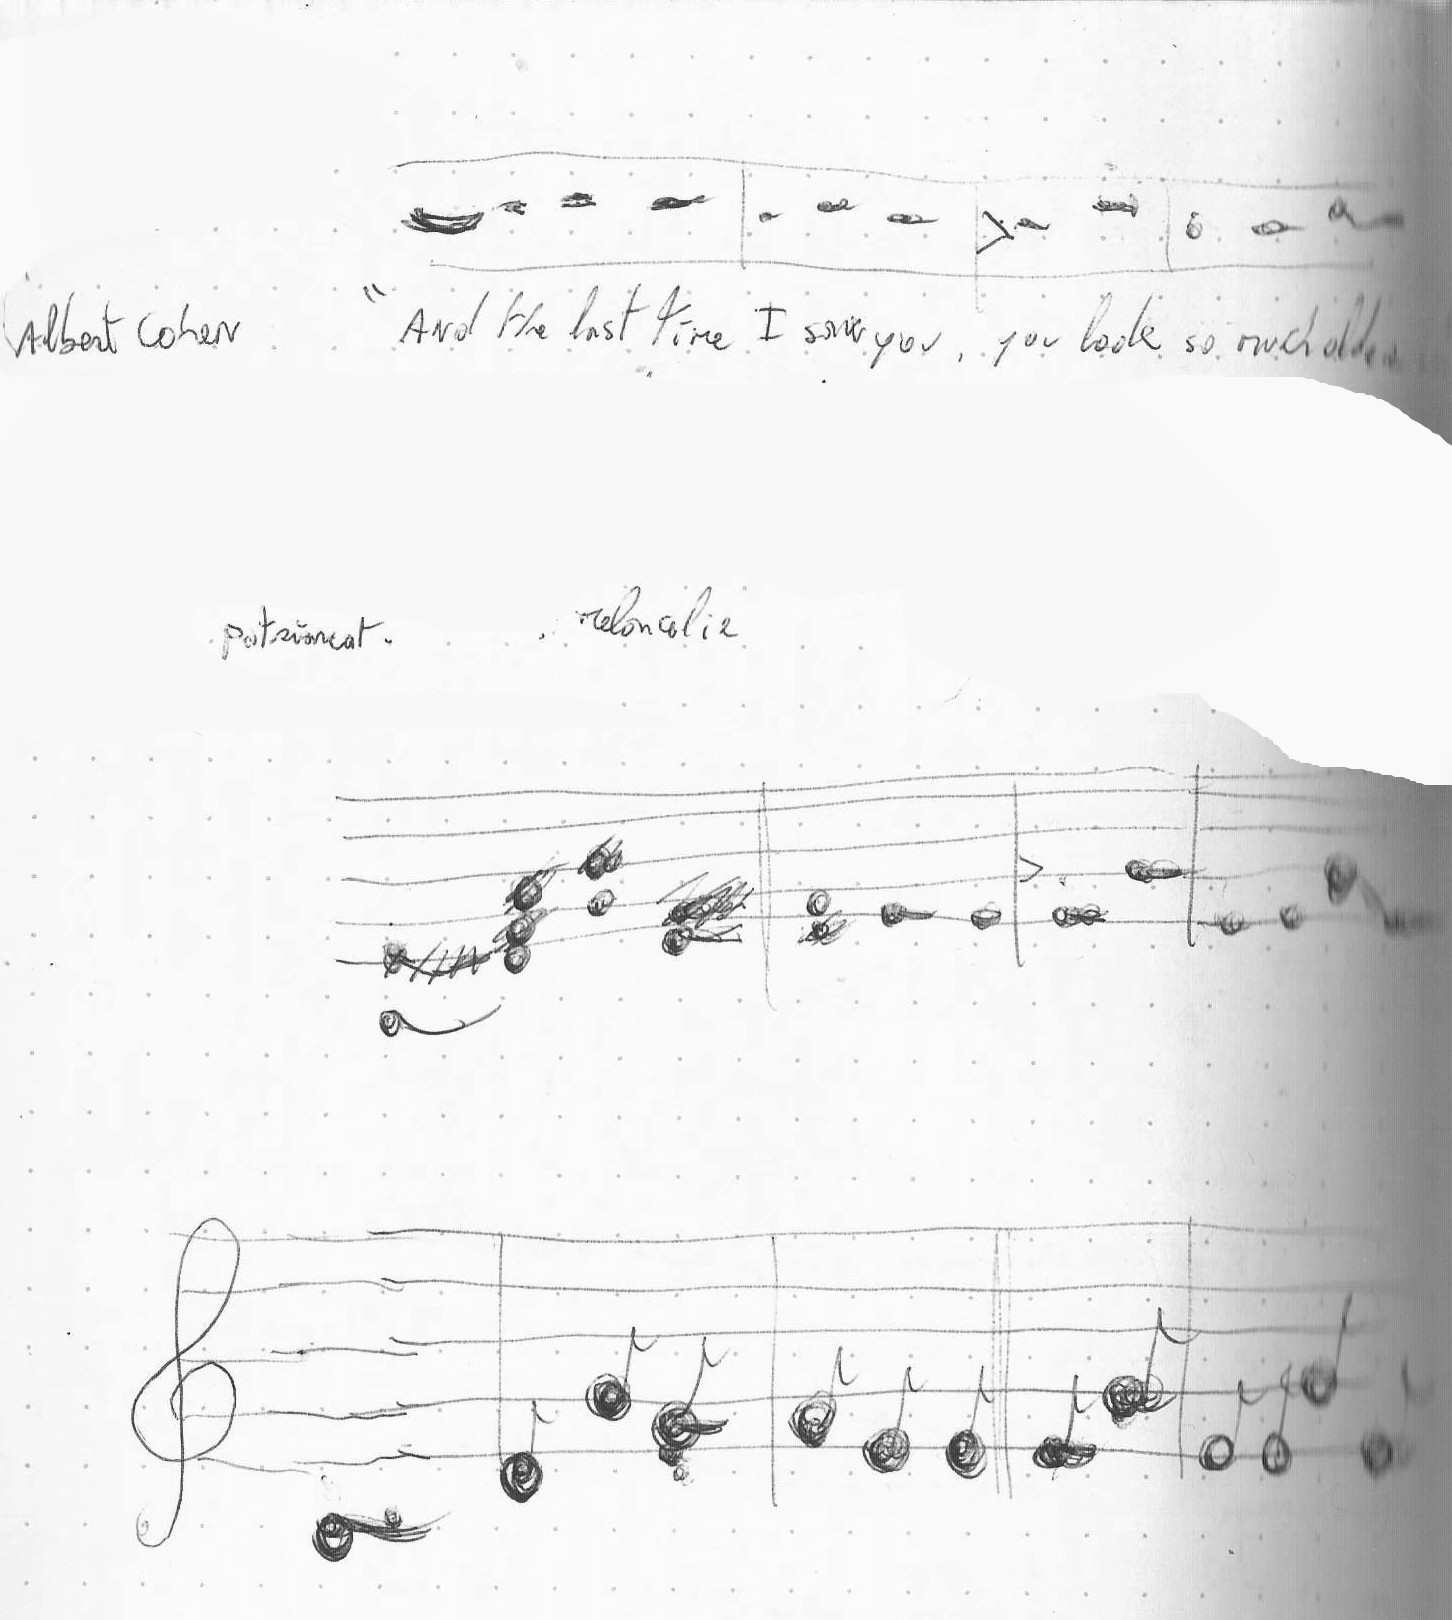 Albert Cohen "And the last time I saw you, you look so much older
patriarcat. melancolie